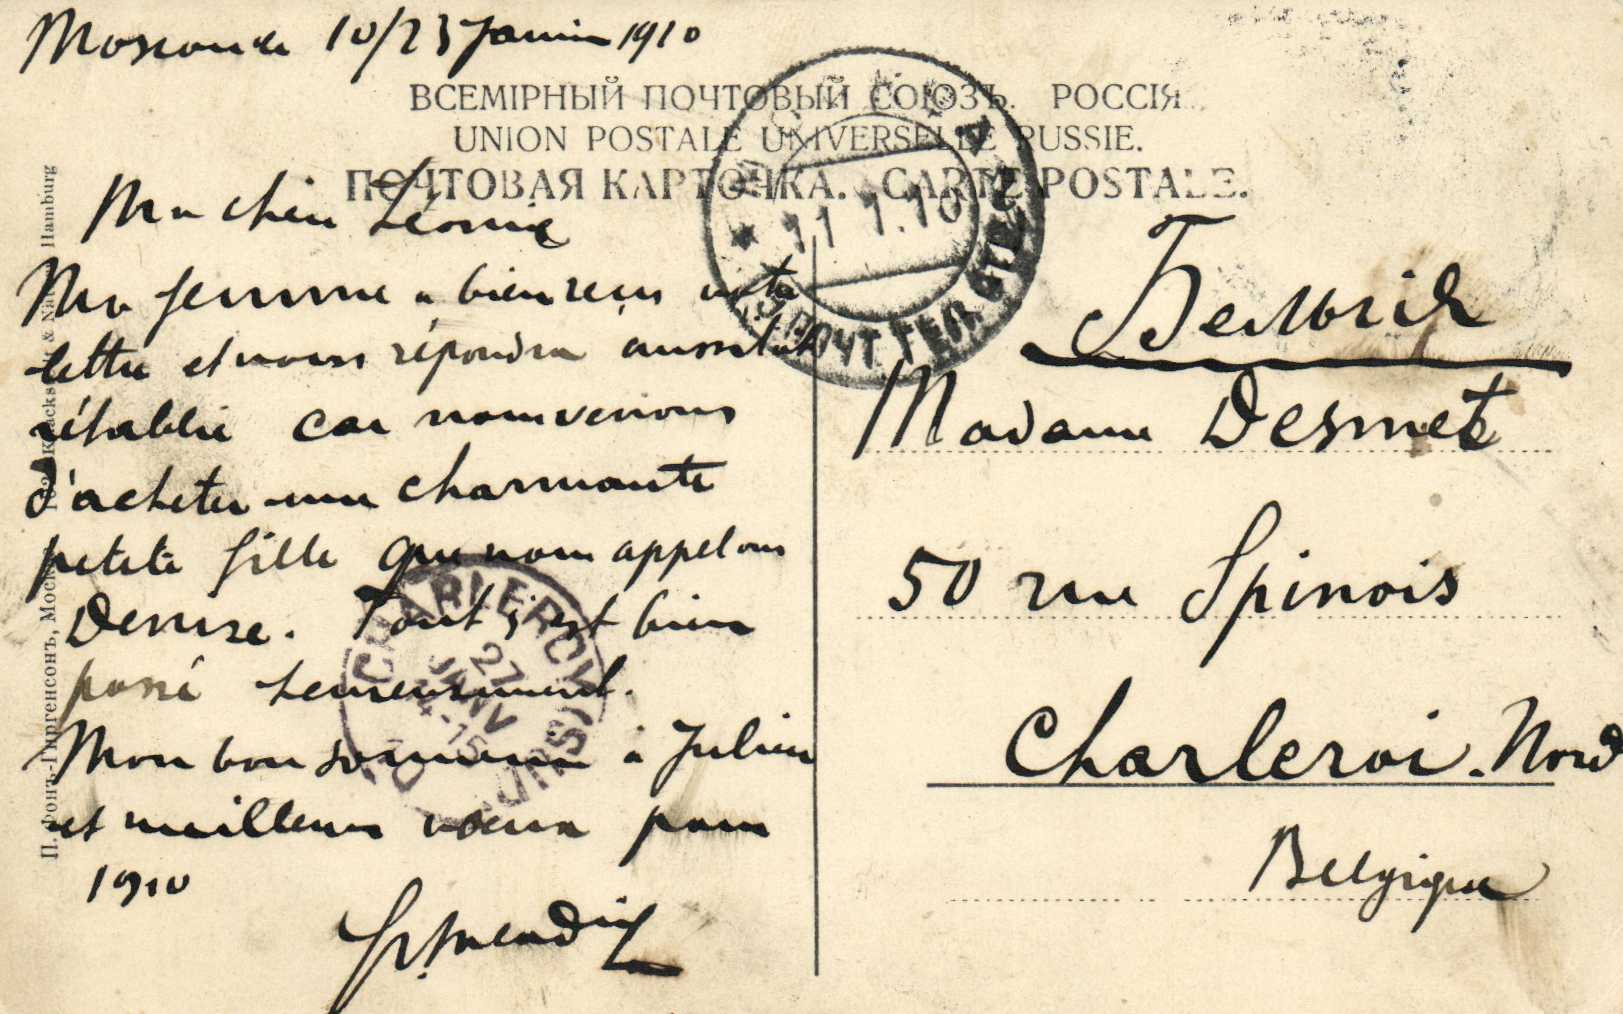 Moscou le 10/23 Janvier 1910
ВСЕМІРНЫЙ ПОЧТОВЫЙ СОЮЗЪ. РОССІЯ.
UNION POSTALE UNIVERSELLE RUSSIE.
ПОЧТОВАЯ КАРТОЧКА. CARTE POSTALE.
Ma chère Léonie
Ma femme a bien reçu votre
lettre et vous répondra aussitôt
rétablie car nous venons
d'acheter une charmante
petite fille que nous appelons
Denise. Tout s'est bien
passé heureusement.
Mon bon souvenir à Julien
et meilleurs vœux pour
1910
Бельгія
Madame Desmet
50 rue Spinois
Charleroi. Nord
Belgique
11 1.10
ПОЧТ. ТЕЛ. ОТД.
CHARLEROI
27
JANV
14-15
П. фонъ-Гиргенсонъ, Москва
Hamburg